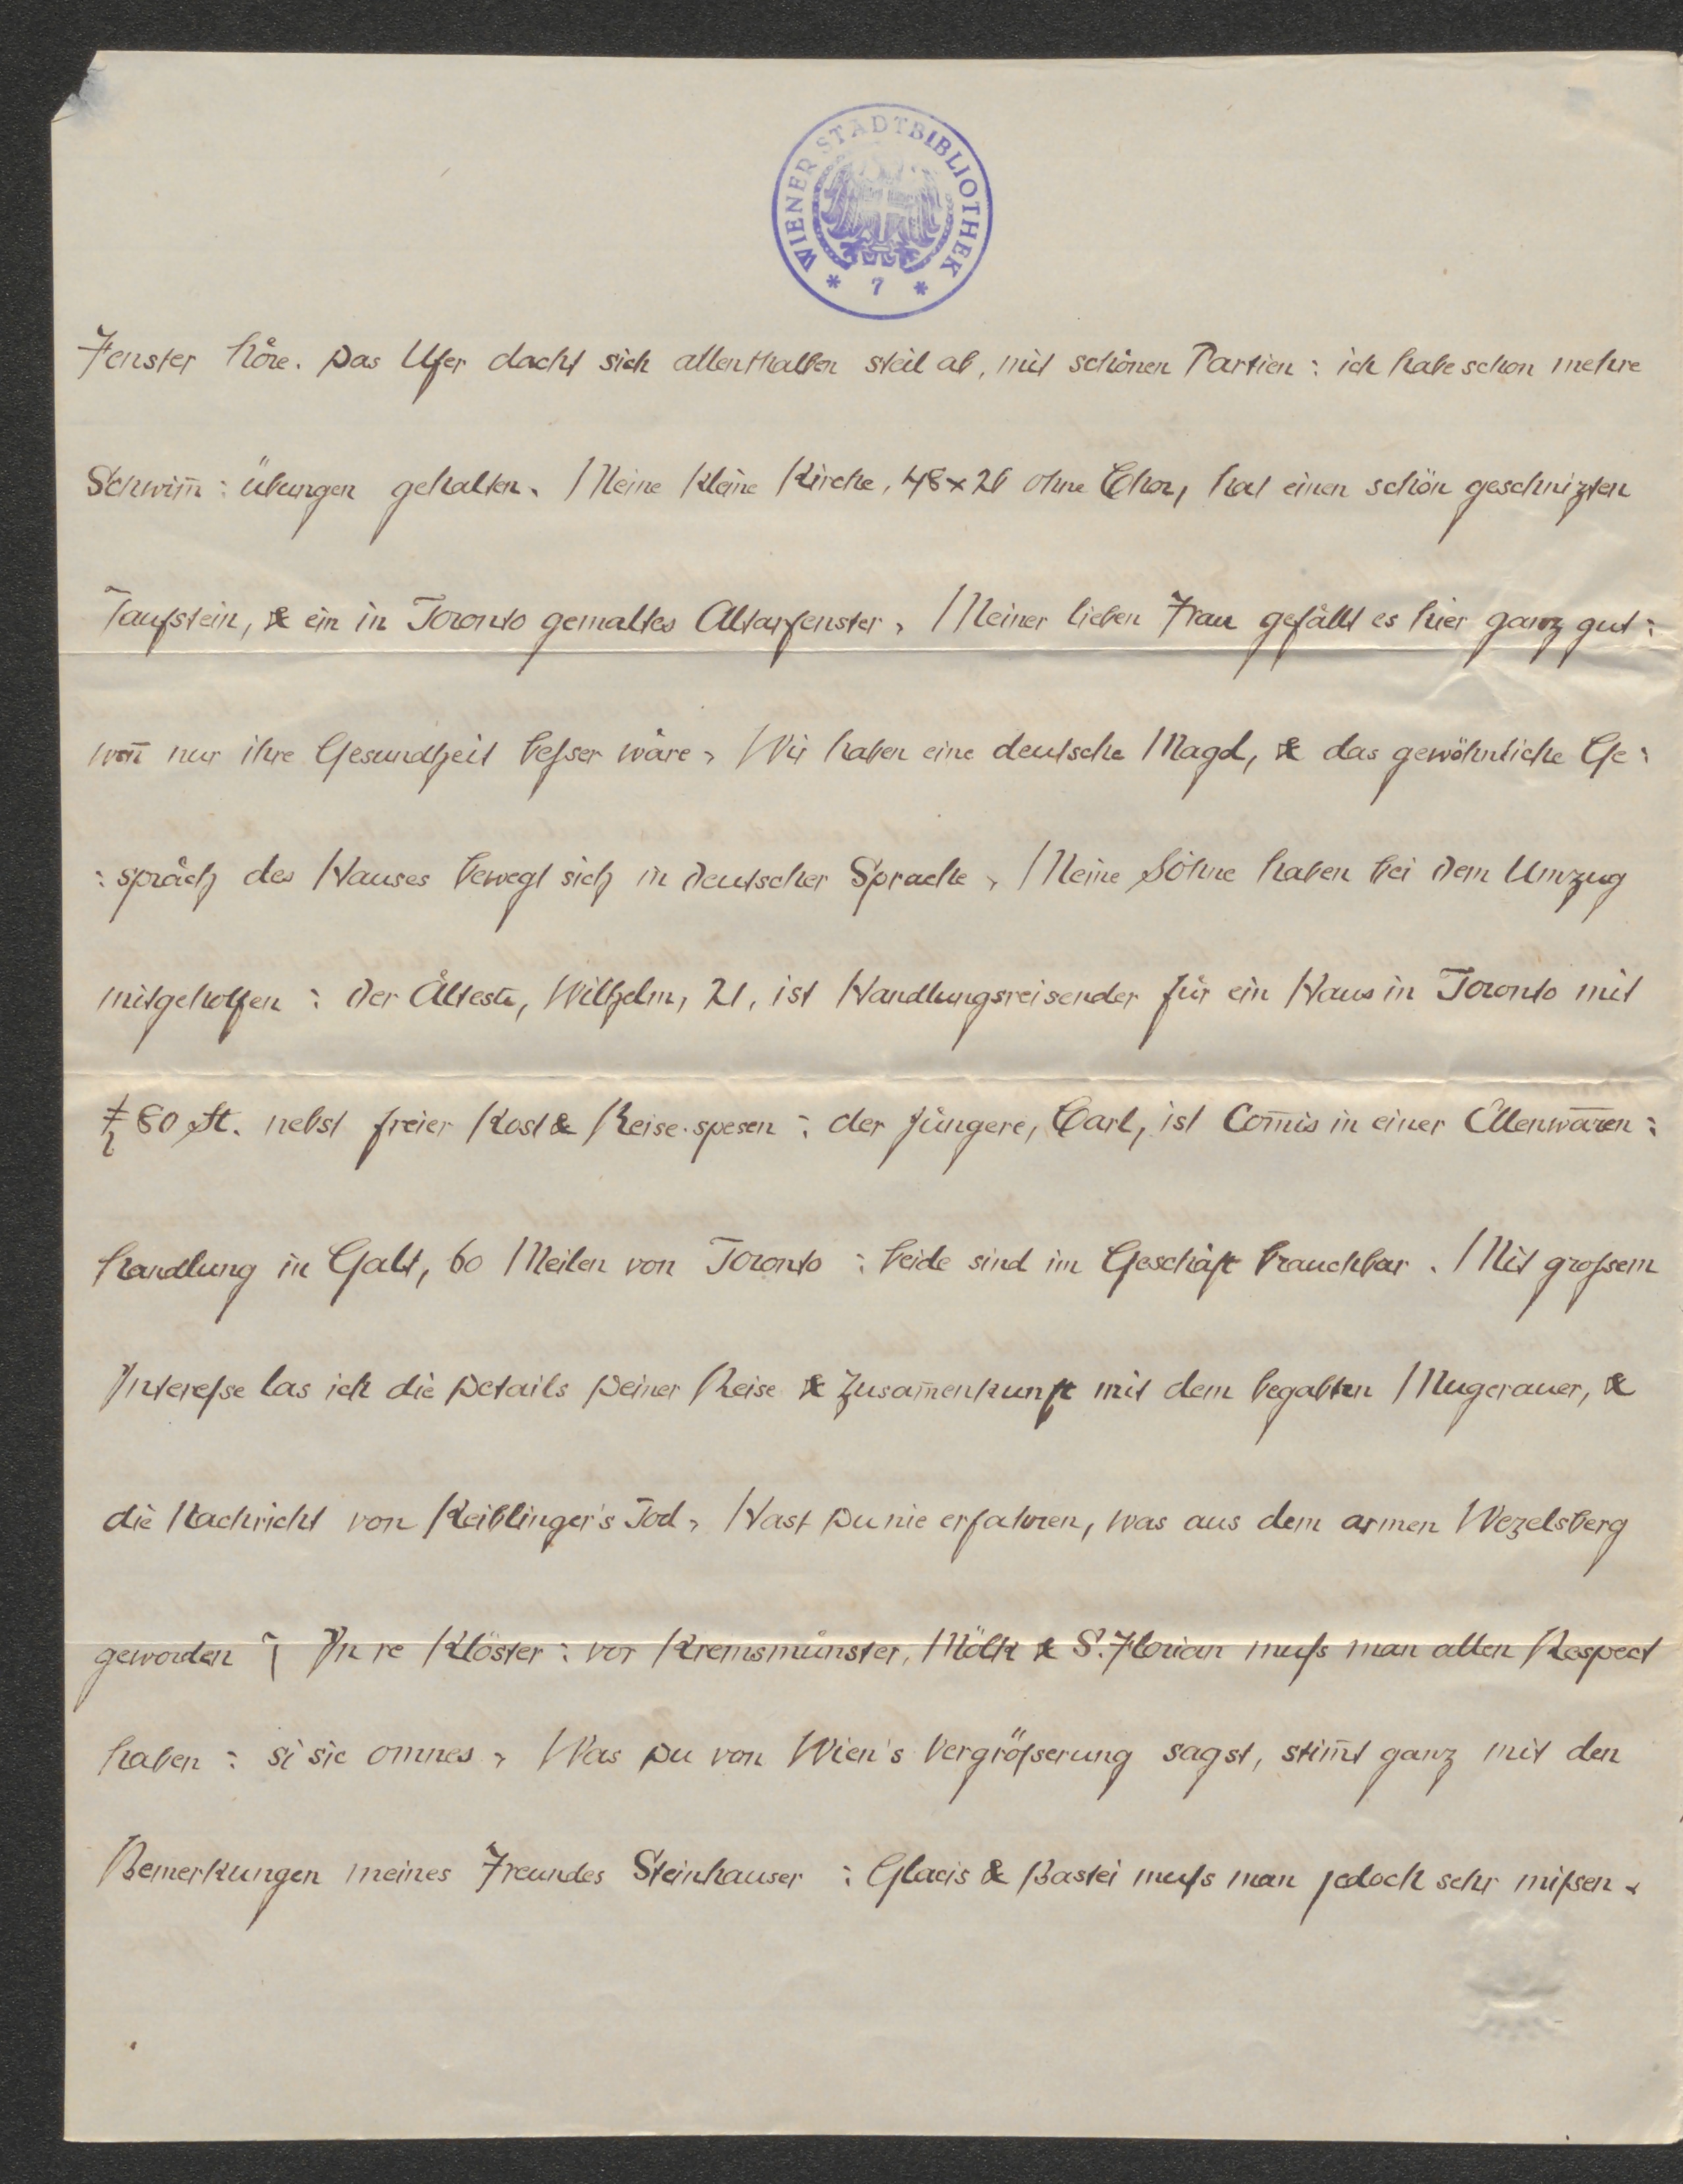 WIENER STADTBIBLIOTHEK
* 7 *
Fenster höre. Das Ufer dacht sich allenthalben steil ab, mit schönen Partien : ich habe schon mehre
Schwim̅ : übungen gehalten. Meine kleine Kirche, 48 x 26 ohne Chor, hat einen schön geschnizten
Taufstein, & ein in Toronto gemaltes Altarfenster. Meiner lieben Frau gefällt es hier ganz gut :
wen̅ nur ihre Gesundheit beſser wäre. Wir haben eine deutsche Magd, & das gewöhnliche Ge :
: spräch des Hauses bewegt sich in deutscher Sprache. Meine Söhne haben bei dem Umzug
mitgeholfen : der Älteste, Wilhelm, 21, ist Handlungsreisender für ein Haus in Toronto mit
80 St. nebst freier Kost & Reise-spesen : der jüngere, Carl, ist Com̅is in einer Ellenwaren :
handlung in Galt, 60 Meilen von Toronto : beide sind im Geschäft brauchbar. Mit groſsem
Intereſse las ich die Details Deiner Reise & Zusam̅enkunft mit dem begabten Mugerauer, &
die Nachricht von Keiblinger's Tod. Hast Du nie erfahren, was aus dem armen Wezelsberg
geworden ? In re Klöster : vor Kremsmünster, Mölk & S. Florian muſs man allen Respect
haben : si sic omnes. Was Du von Wien's Vergröſserung sagst, stim̅t ganz mit den
Bemerkungen meines Freundes Steinhauser : Glacis & Bastei muſs man jedoch sehr miſsen.